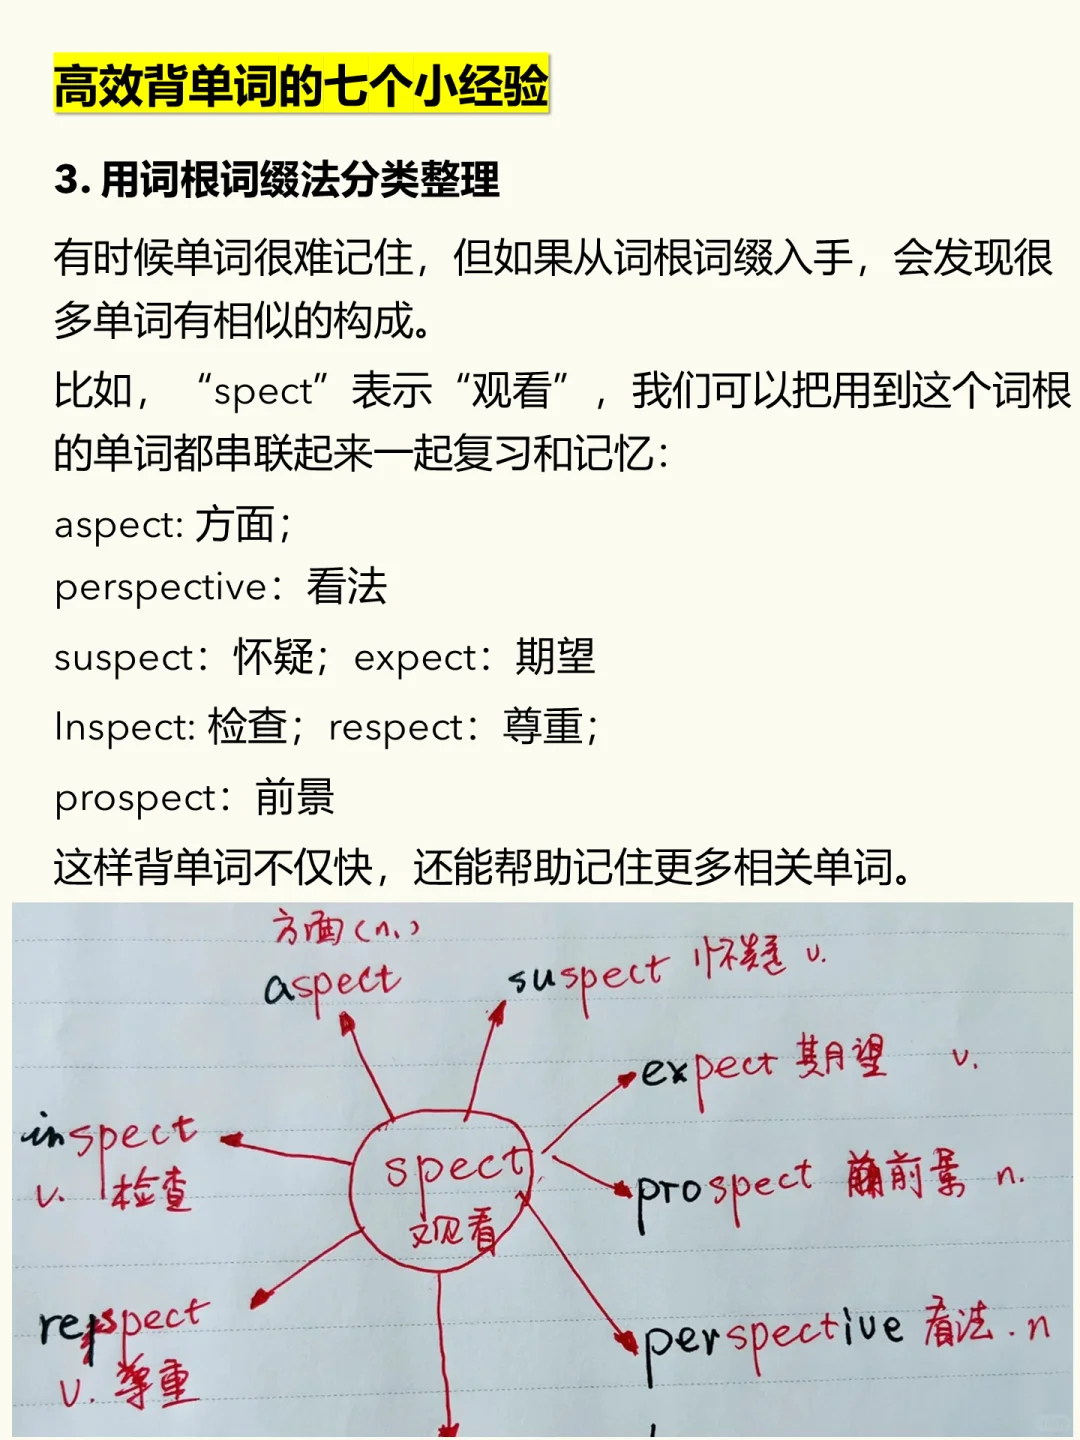 高效背单词的七个小经验
3. 用词根词缀法分类整理
有时候单词很难记住，但如果从词根词缀入手，会发现很
多单词有相似的构成。
比如，“spect”表示“观看”，我们可以把用到这个词根
的单词都串联起来一起复习和记忆：
aspect: 方面；
perspective：看法
suspect：怀疑；expect：期望
Inspect: 检查；respect：尊重；
prospect：前景
这样背单词不仅快，还能帮助记住更多相关单词。
方面(n.)
aspect
suspect 怀疑 v.
expect 期望 v.
inspect
v. 检查
spect
观看
prospect 前景 n.
respect
v. 尊重
perspective 看法. n